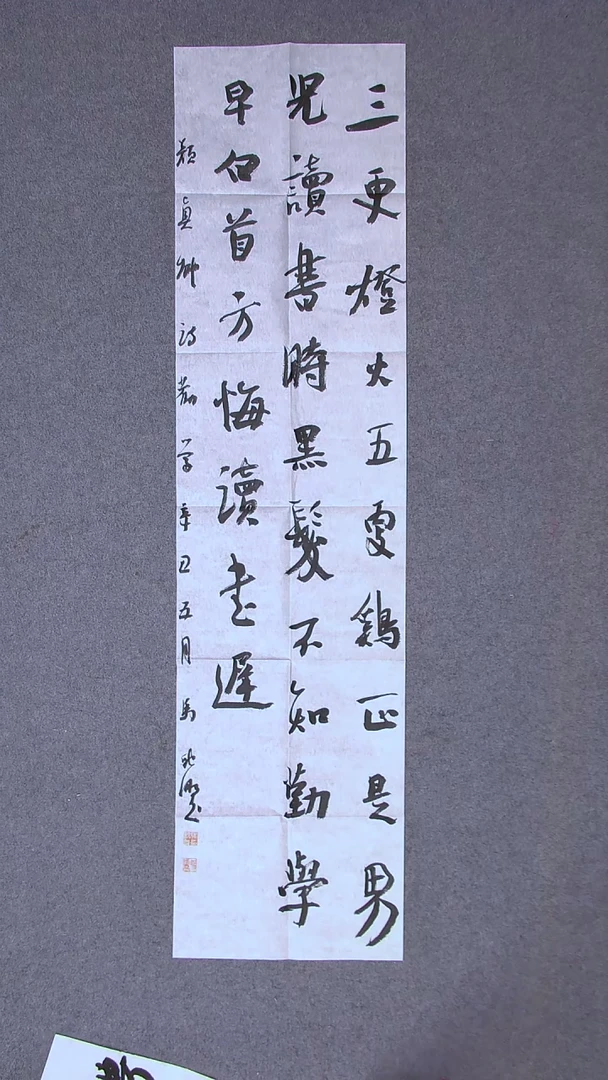 三更燈火五更鷄正是男
児讀書時黑髮不知勤學
早白首方悔讀书遲
顏真卿詩勸学辛丑五月